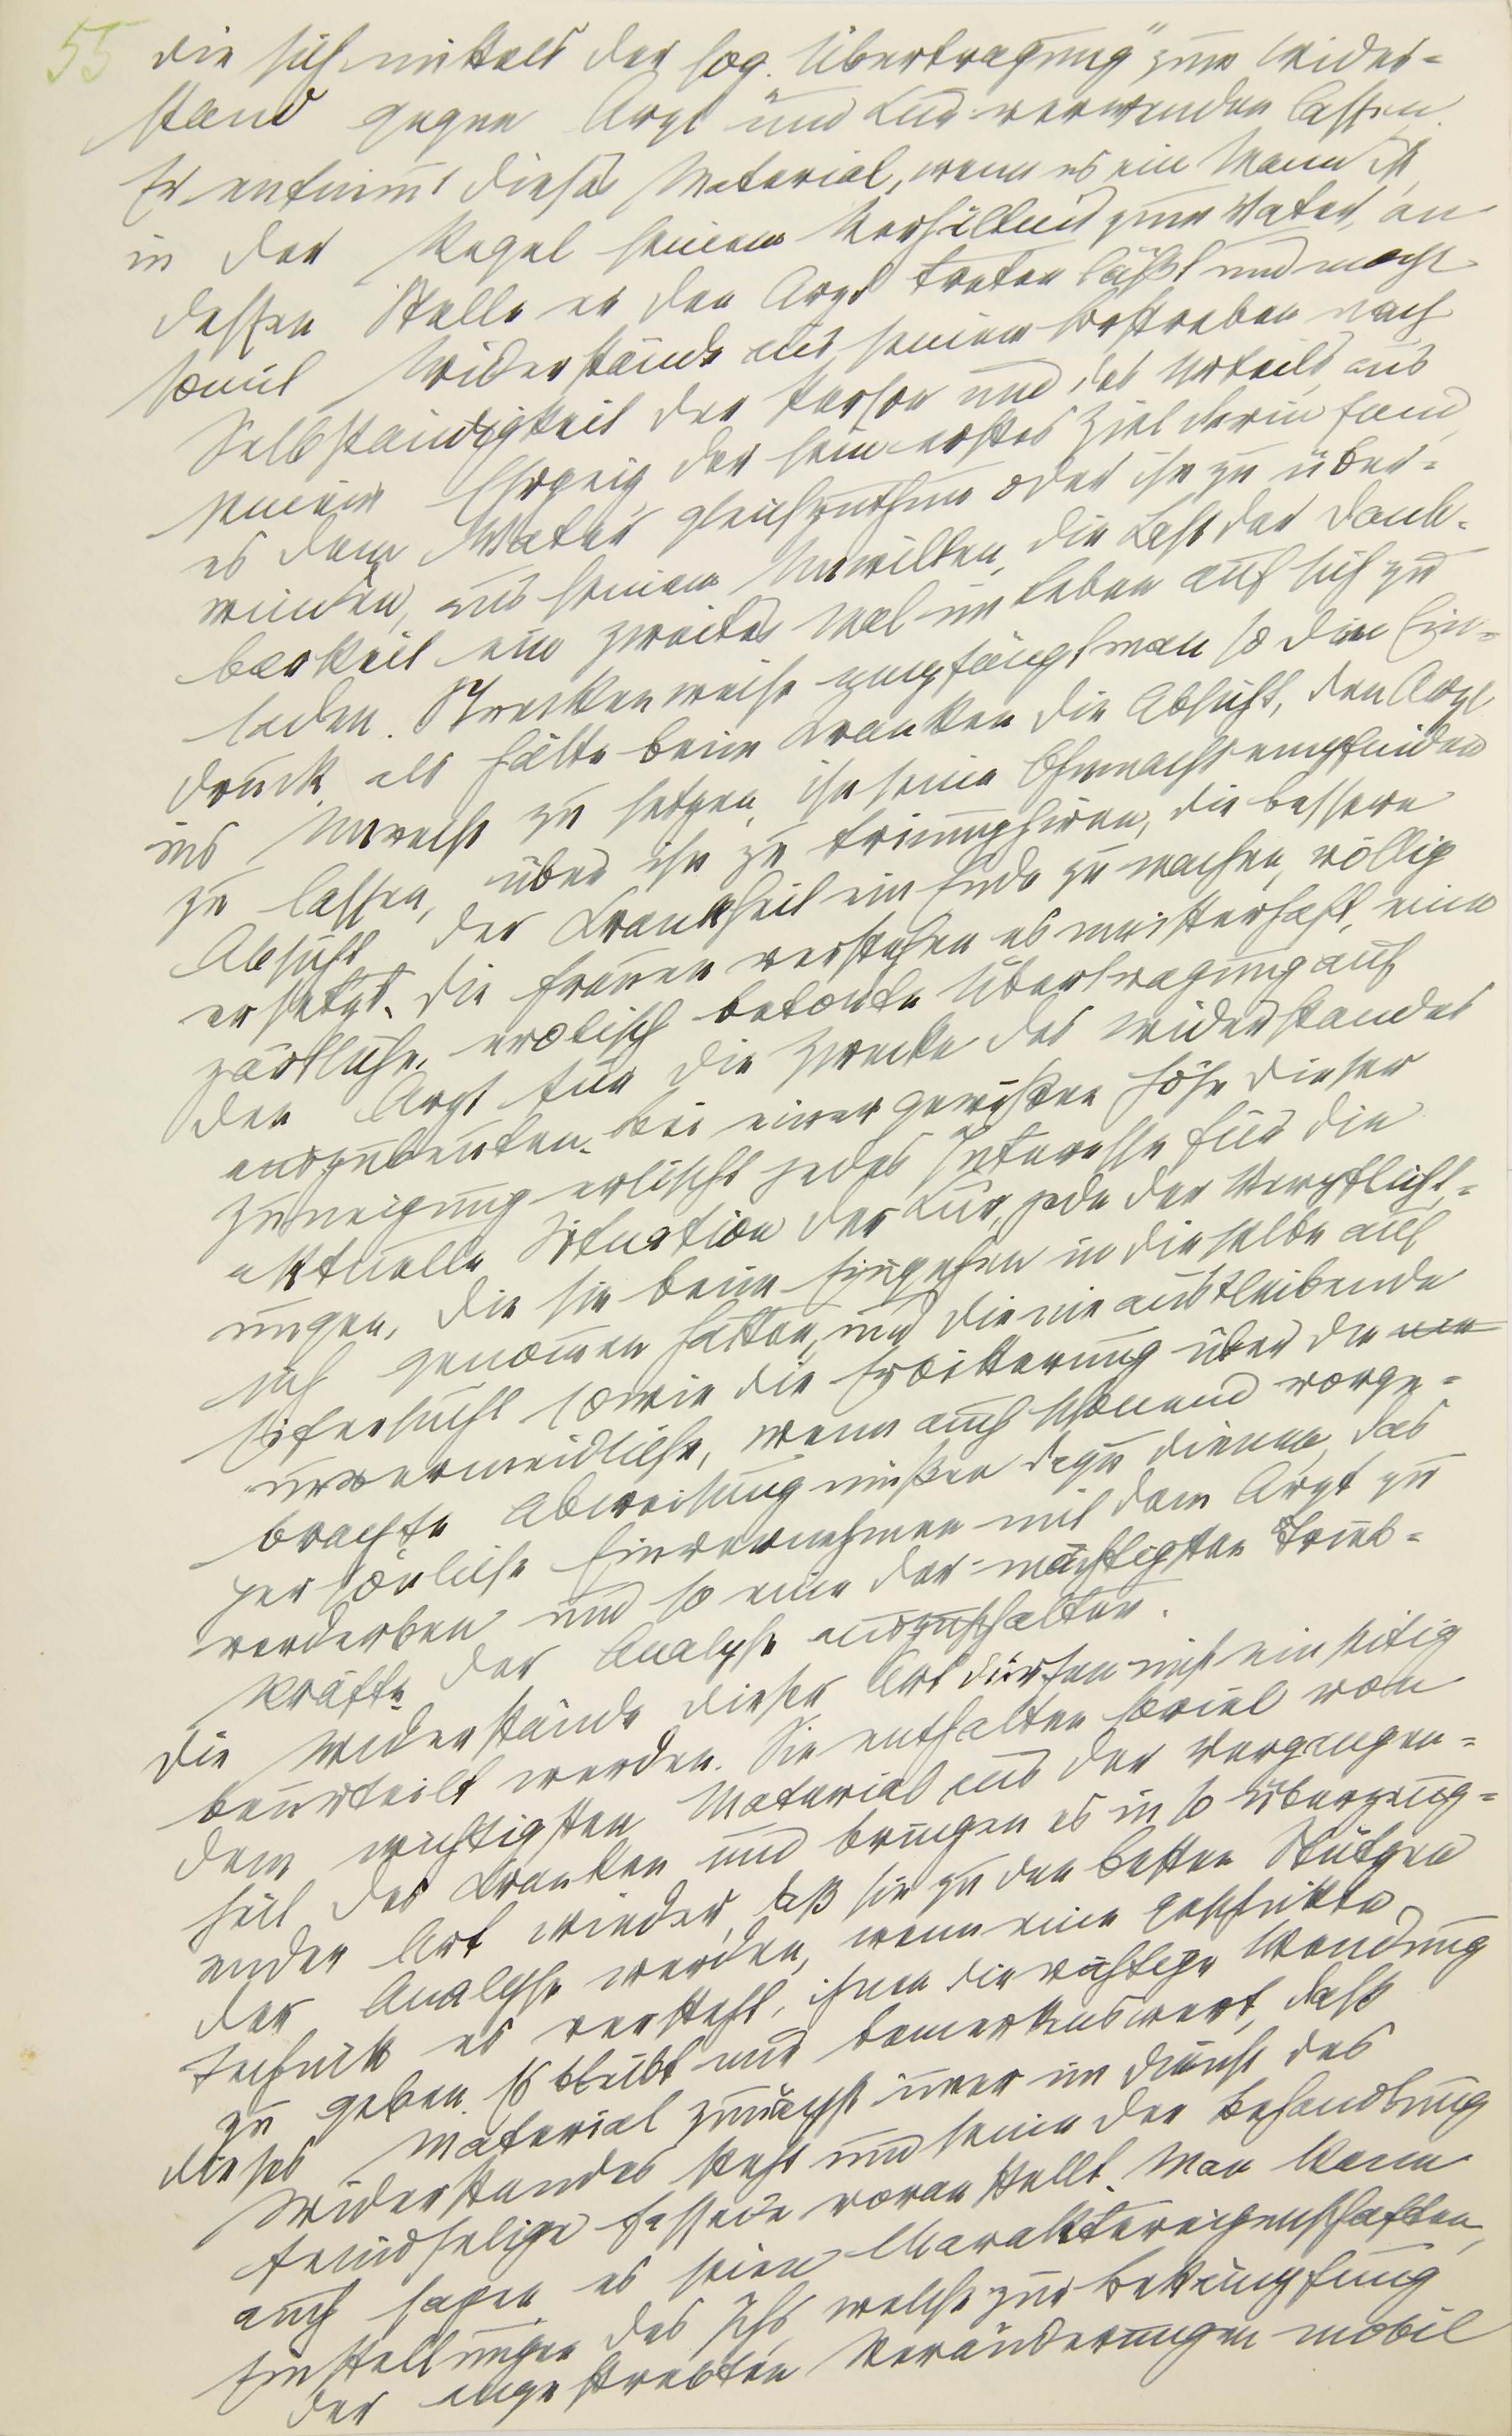 55
die sich mittels der sog. Übertragung" zum Wider=
stand gegen Arzt und Kur verwenden lassen.
Er entnim̄t dieses Material, wenn es ein Mann ist,
in der Regel seinem Verhältnis zum Vater, an
dessen Stelle er den Arzt treten läßt und macht
somit Widerstände aus seinem Bestreben nach
Selbständigkeit der Person und des Urteils, aus
seinem Ehrgeiz, der sein erstes Ziel darin fand,
es dem Vater gleichzuthun oder ihn zu über=
winden, aus seinem Unwillen, die Last der Dank=
barkeit ein zweites Mal im Leben auf sich zu
laden. Streckenweise empfängt man so den Ein=
druck, als hätte beim Kranken die Absicht, den Arzt
ins Unrecht zu setzen, ihn seine Ohnmacht empfinden
zu lassen, über ihn zu triumphiren, die bessere
Absicht, der Krankheit ein Ende zu machen, völlig
ersetzt. Die Frauen verstehen es meisterhaft, eine
zärtliche, erotisch betonte Übertragung auf
den Arzt für die Zwecke des Widerstandes
auszubeuten. Bei einer gewißen Höhe dieser
Zuneigung erlischt jedes Interesse für die
aktuelle Situation der Kur, jede der Verpflicht=
ungen, die sie beim Eingehen in dieselbe auf
sich genom̄en hatten, und die nie ausbleibende
Eifersucht sowie die Erbitterung über die
unvermeidliche, wenn auch schonend vorge=
brachte Abweisung müßen dazu dienen, das
persönliche Einvernehmen mit dem Arzt zu
verderben und so eine der mächtigsten Trieb=
kräfte der Analyse auszuschalten.
Die Widerstände dieser Art dürfen nicht einseitig
beurteilt werden. Sie enthalten soviel von
dem wichtigsten Material aus der Vergangen=
heit des Kranken und bringen es in so überzeug=
ender Art wieder, daß sie zu den besten Stützen
der Analyse werden, wenn eine geschickte
Technik es versteht, ihnen die richtige Wendung
zu geben. Es bleibt nur bemerkenswert, daß
dieses Material zunächst im̄er im Dienst des
Widerstandes steht und seine der Behandlung
feindselige Fassade voran stellt. Man kann
auch sagen, es seien Charaktereigenschaften,
Einstellungen des Ichs, welche zur Bekämpfung
der angestrebten Veränderungen mobil